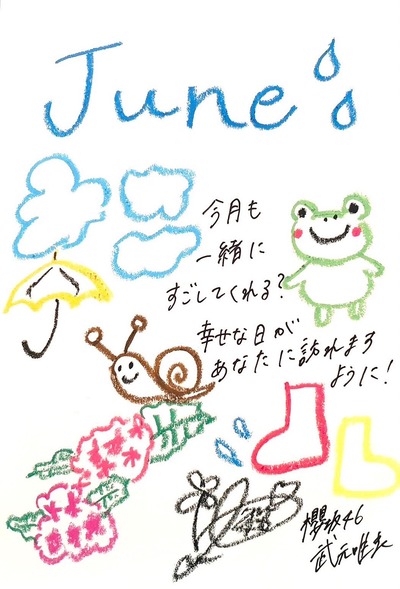 June
今月も
一緒に
すごしてくれる?
幸せな日が
あなたに訪れます
ように!
櫻坂46
武元唯衣